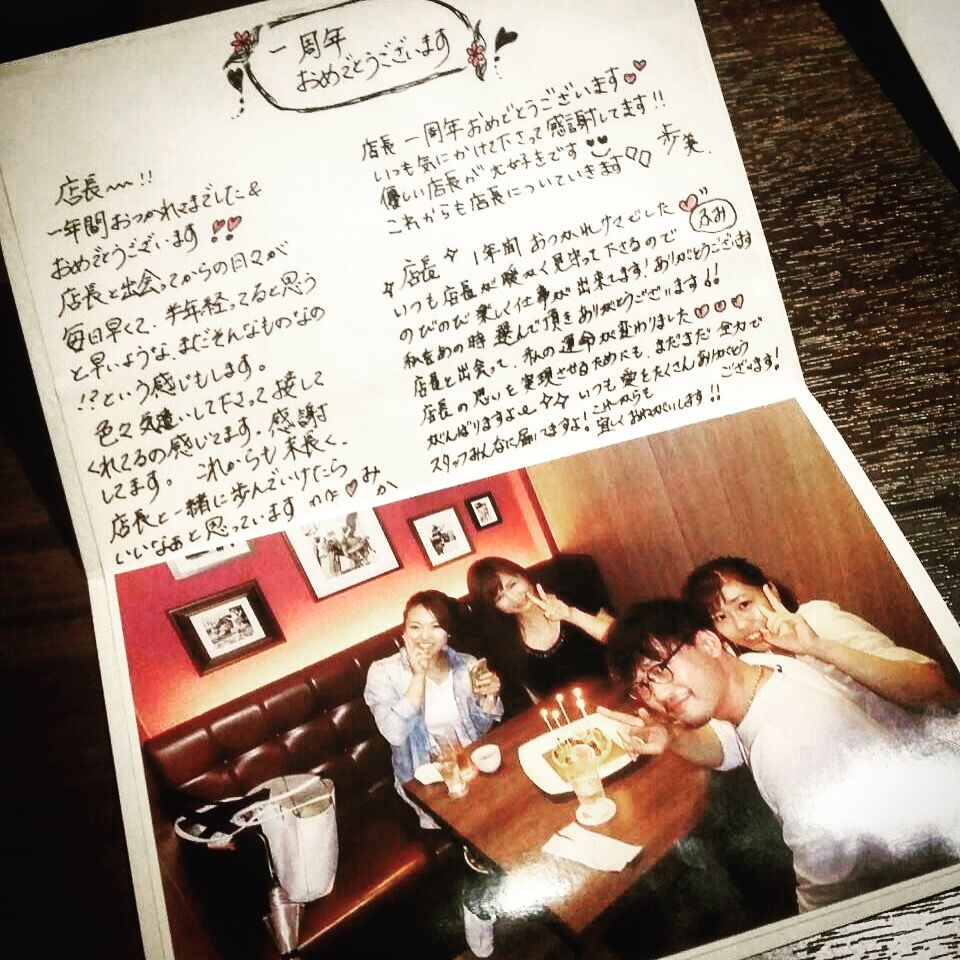 一周年
おめでとうございます
店長〜〜!!
一年間おつかれさまでした&
おめでとうございます!!
店長と出会ってからの日々が
毎日早くて、半年経ってると思う
と早いような、まだそんなものなの
!?という感じもします。
色々気遣いして下さって接して
くれてるの感じてます。感謝
してます。これからも末長く、
店長と一緒に歩んでいけたら
いいなぁと思っています ♡みか
店長 一周年おめでとうございます♡♡
いつも気にかけて下さって感謝してます!!
優しい店長が大好きです
これからも店長についていきます 歩美.
店長 1年間 おつかれサマでした♡ ふみ
いつも店長が暖かく見守って下さるので
のびのび楽しく仕事が出来てます!ありがとうございます
私をあの時選んで頂きありがとうございます!!
店長と出会って、私の運命が変わりました♡♡♡
店長の思いを実現させるためにも、まだまだ全力で
がんばりますよ いつも愛をたくさんありがとう
ございます!
スタッフみんなに届いてますよ!これからも
宜しくおねがいします!!